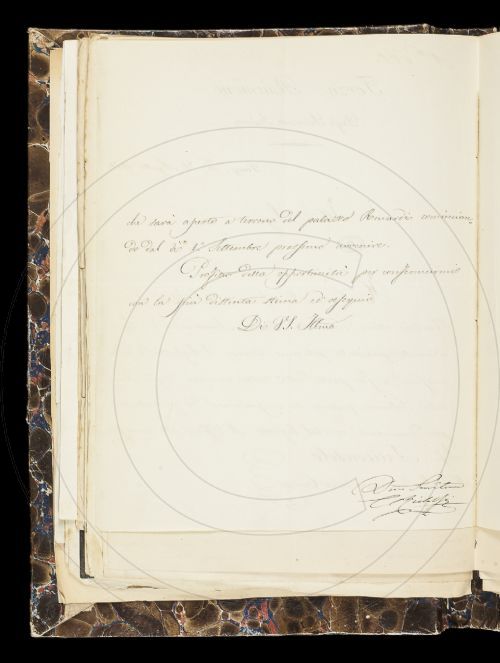 che sarà aperto a terreno del palazzo comincian-
do dal dì 1º Settembre prossimo avvenire.
Profitto della opportunità per confermarmi
con la più distinta stima ed ossequio
Di V.S. Illma